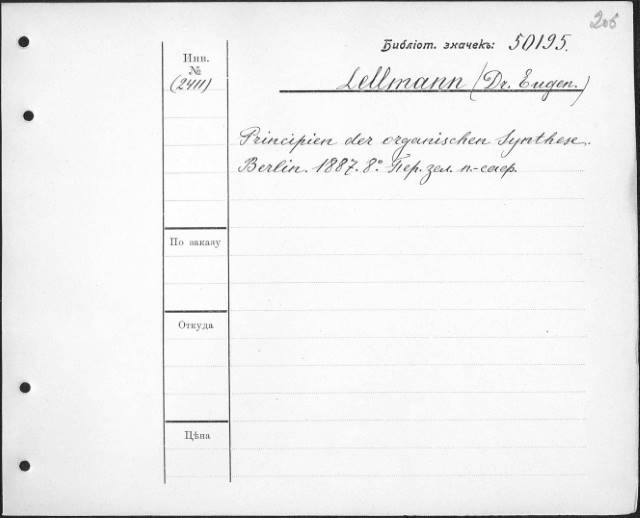 205
Библіот. значекъ: 50195.
Инв.
№
(2411)
Lellmann (Dr. Eugen.)
Principien der organischen Synthese.
Berlin. 1887. 8° Пер. зел. п.-саф.
По заказу
Откуда
Цѣна